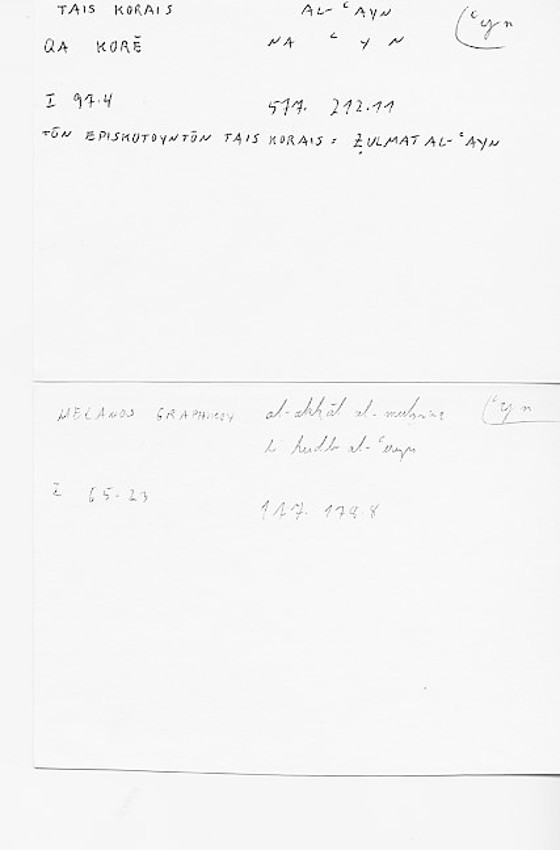 TAIS KORAIS AL-ʿAYN (ʿyn
QA KORĒ NA ʿ Y N
I 97.4 577. 212.11
TŌN EPISKOTOYNTŌN TAIS KORAIS = ẒULMAT AL-ʿAYN
MELANOS GRAPHIKOY al-akḥāl al- (ʿyn
li al-ʿuyūn
I 65-23 117. 179.8